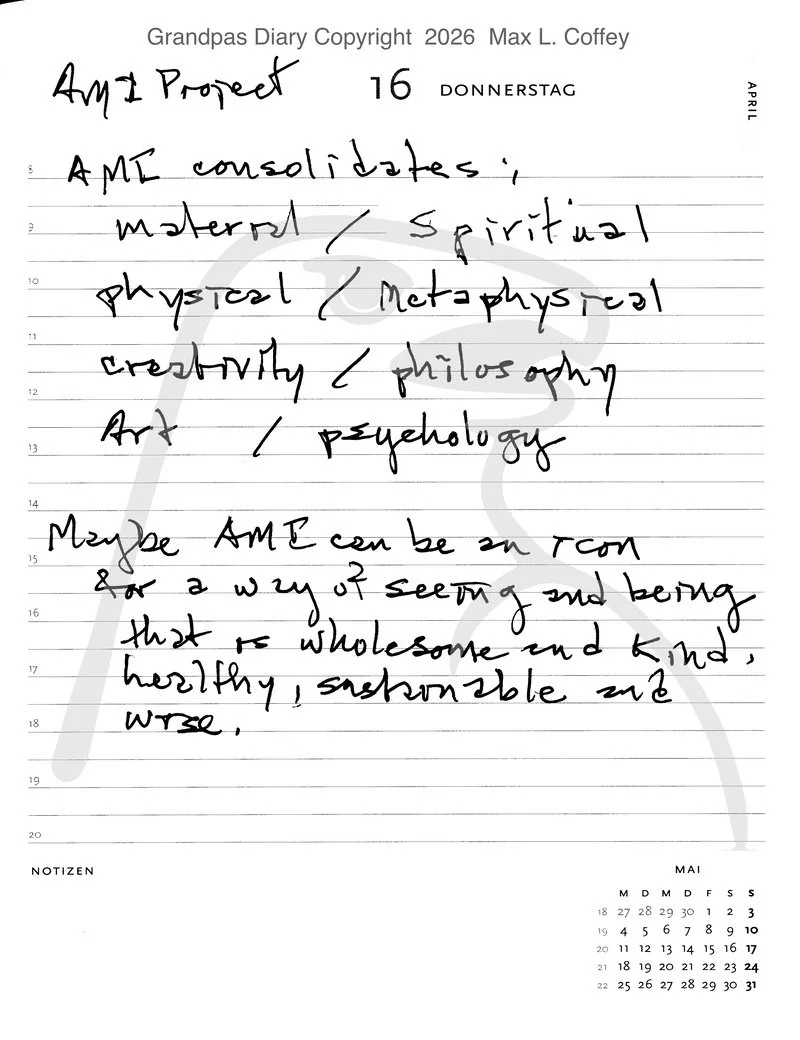 Grandpas Diary Copyright 2026 Max L. Coffey
AMI Project 16 DONNERSTAG APRIL
8 AMI consolidates:
9 material / Spiritual
10 physical / Metaphysical
11 creativity / philosophy
12
13 Art / psychology
14
15 Maybe AMI can be an icon
16 for a way of seeing and being
that is wholesome and kind,
17 healthy, sustainable and
18 wise.
19
20
NOTIZEN MAI
M D M D F S S
18 27 28 29 30 1 2 3
19 4 5 6 7 8 9 10
20 11 12 13 14 15 16 17
21 18 19 20 21 22 23 24
22 25 26 27 28 29 30 31